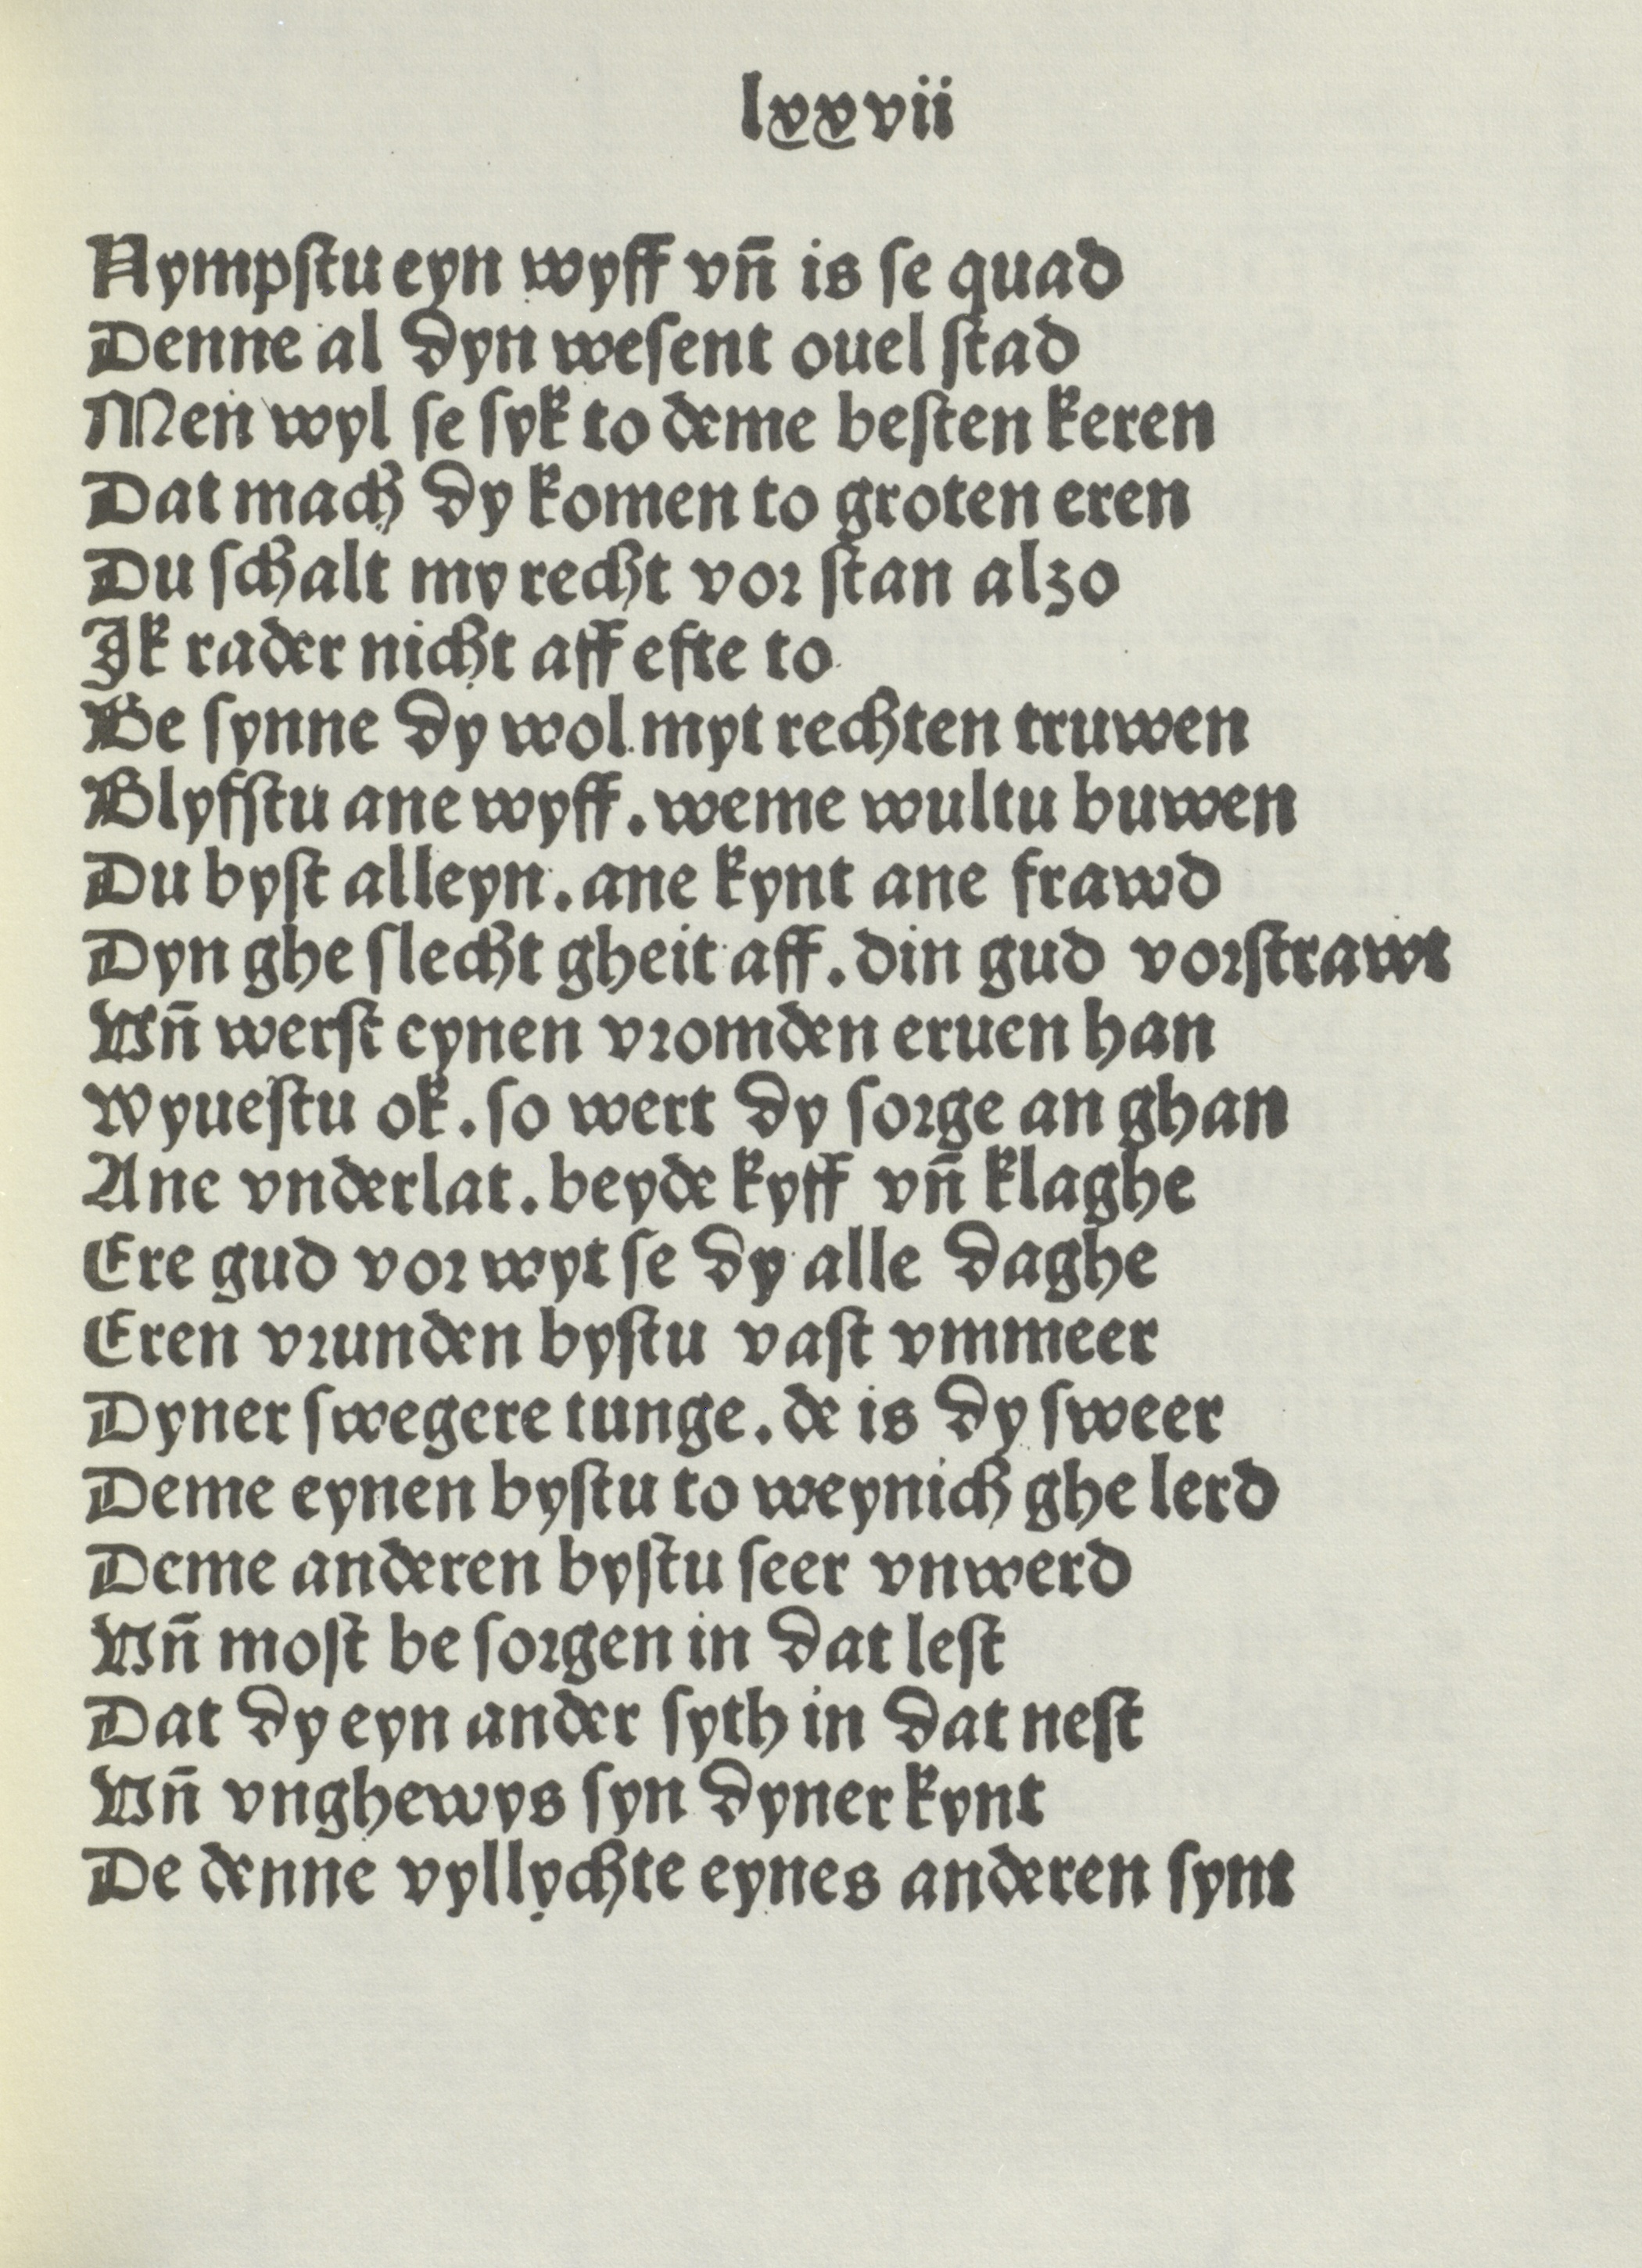 lxxvii
Nympſtu eyn wyff vn̄ is ſe quad
Denne al dyn weſent ouel ſtad
Men wyl ſe ſyk to deme beſten keren
Dat mach dy komen to groten eren
Du ſchalt my recht vor ſtan alzo
Ik rader nicht aff efte to
Be ſynne dy wol myt rechten truwen
Blyfſtu ane wyff. weme wultu buwen
Du byſt alleyn. ane kynt ane frawd
Dyn ghe ſlecht gheit aff. din gud vorſtrawt
Vn̄ werſt eynen vromden eruen han
Wyueſtu ok. ſo wert dy ſorge an ghan
Ane vnderlat. beyde kyff vn̄ klaghe
Ere gud vor wyt ſe dy alle daghe
Eren vrunden byſtu vaſt vmmeer
Dyner ſwegere tunge. de is dy ſweer
Deme eynen byſtu to weynich ghe lerd
Deme anderen byſtu ſeer vnwerd
Vn̄ moſt be ſorgen in dat leſt
Dat dy eyn ander ſyth in dat neſt
Vn̄ vnghewys ſyn dyner kynt
De denne vyllychte eynes anderen ſynt